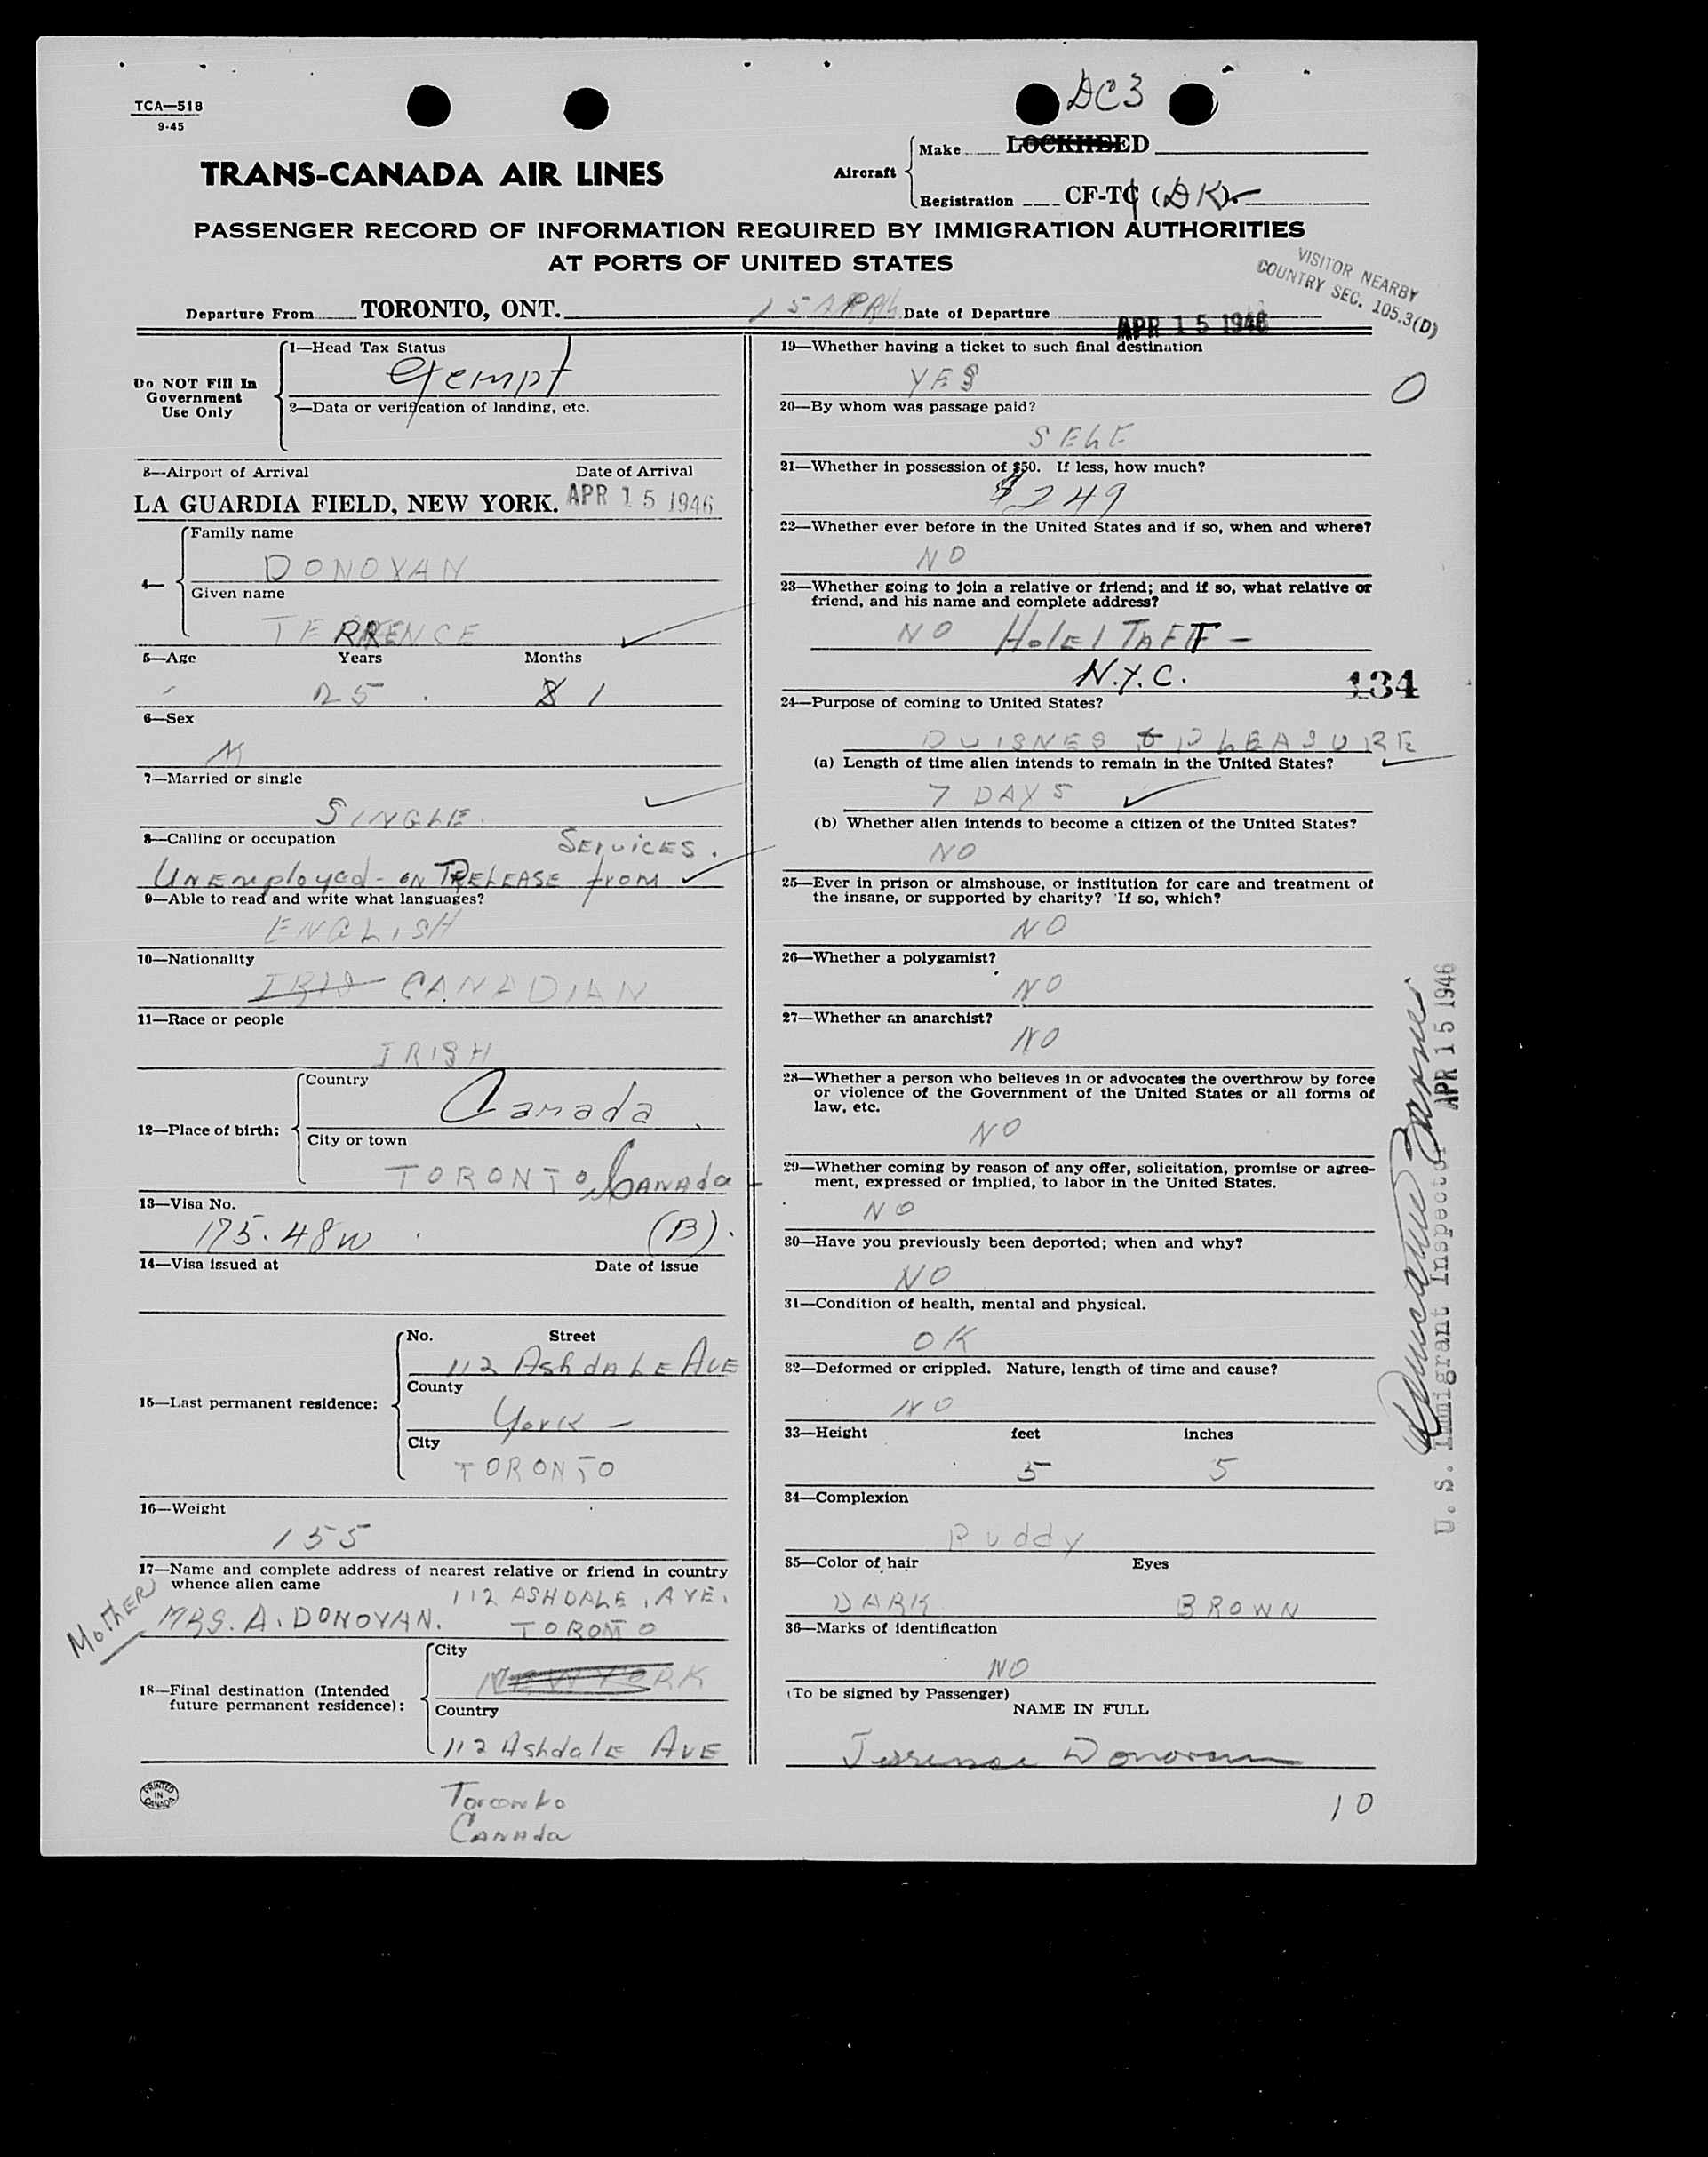 TCA—518
9-45
DC3
TRANS-CANADA AIR LINES
Aircraft
Make LOCKHEED
Registration CF-TC (DK)
PASSENGER RECORD OF INFORMATION REQUIRED BY IMMIGRATION AUTHORITIES
AT PORTS OF UNITED STATES
VISITOR NEARBY
COUNTRY SEC. 105.3(D)
Departure From TORONTO, ONT. 15 APR Date of Departure APR 15 1946
Do NOT Fill In
Government
Use Only
1—Head Tax Status
Exempt
2—Data or verification of landing, etc.
3—Airport of Arrival Date of Arrival
LA GUARDIA FIELD, NEW YORK. APR 15 1946
4—
Family name
DONOVAN
Given name
TERRENCE
5—Age Years Months
25 8 1
6—Sex
M
7—Married or single
SINGLE.
8—Calling or occupation
SERVICES.
UNEmployed - ON RELEASE from
9—Able to read and write what languages?
ENGLISH
10—Nationality
IRIS CANADIAN
11—Race or people
IRISH
12—Place of birth:
Country
Canada
City or town
TORONTO, CANADA
13—Visa No.
175.48W (B).
14—Visa issued at Date of issue
15—Last permanent residence:
No. Street
112 AshdALE AVE
County
York —
City
TORONTO
16—Weight
155
17—Name and complete address of nearest relative or friend in country
whence alien came
112 ASHDALE, AVE.
MOTHER
MRS. A. DONOVAN. TORONTO
18—Final destination (Intended
future permanent residence):
City
NEW YORK
Country
112 AshdalE AVE
Toronto
CANAda
PRINTED
IN
CANADA
19—Whether having a ticket to such final destination
YES
O
20—By whom was passage paid?
SELF
21—Whether in possession of $50. If less, how much?
$249
22—Whether ever before in the United States and if so, when and where?
NO
23—Whether going to join a relative or friend; and if so, what relative or
friend, and his name and complete address?
NO HotEl TAFT —
N.Y.C.
134
24—Purpose of coming to United States?
BUISNES & PLEASURE
(a) Length of time alien intends to remain in the United States?
7 DAYS
(b) Whether alien intends to become a citizen of the United States?
NO
25—Ever in prison or almshouse, or institution for care and treatment of
the insane, or supported by charity? If so, which?
NO
26—Whether a polygamist?
NO
27—Whether an anarchist?
NO
28—Whether a person who believes in or advocates the overthrow by force
or violence of the Government of the United States or all forms of
law, etc.
NO
29—Whether coming by reason of any offer, solicitation, promise or agree-
ment, expressed or implied, to labor in the United States.
NO
30—Have you previously been deported; when and why?
NO
31—Condition of health, mental and physical.
OK
32—Deformed or crippled. Nature, length of time and cause?
NO
33—Height feet inches
5 5
34—Complexion
Ruddy
35—Color of hair Eyes
DARK BROWN
36—Marks of identification
NO
(To be signed by Passenger)
NAME IN FULL
Terrence Donovan
10
U. S. Immigrant Inspector APR 15 1946